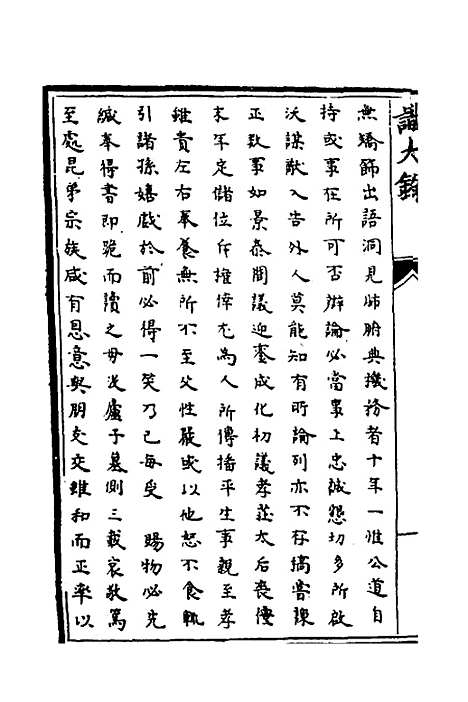 識大錄
無矯飾出語洞見肺腑典機務者十年一惟公道自
持或事在所可否辨論必當事上忠誠懇切多所啟
沃謀猷入告外人莫能知有時論列亦不存搞嘗諫
正致事如景泰間議迎鑾成化初議孝莊太后喪禮
末年定儲位斥權倖尤為人所傳播平生事親至孝
雖貴左右奉養無所不至父性嚴或以他怒不食輒
引諸孫嬉戲於前必得一笑乃已每受　賜物必先
緘奉得書即跪而讀之毋沒廬子墓側三載哀敬篤
至處昆弟宗族咸有恩意與朋友交雖和而正率以
一